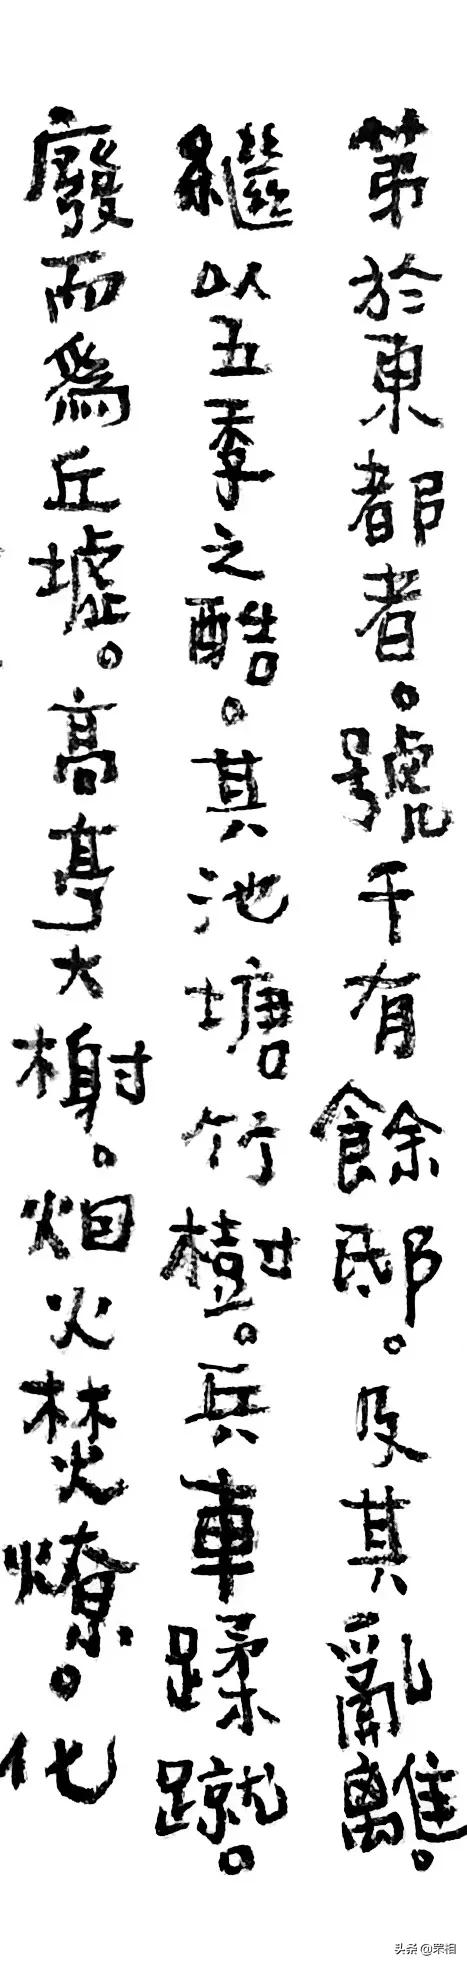 第於東都者。號千有餘邸。及其亂離。
繼以五季之酷。其池塘竹樹。兵車蹂蹴。
廢而為丘墟。高亭大榭。烟火焚燎。化
头条 @罘相